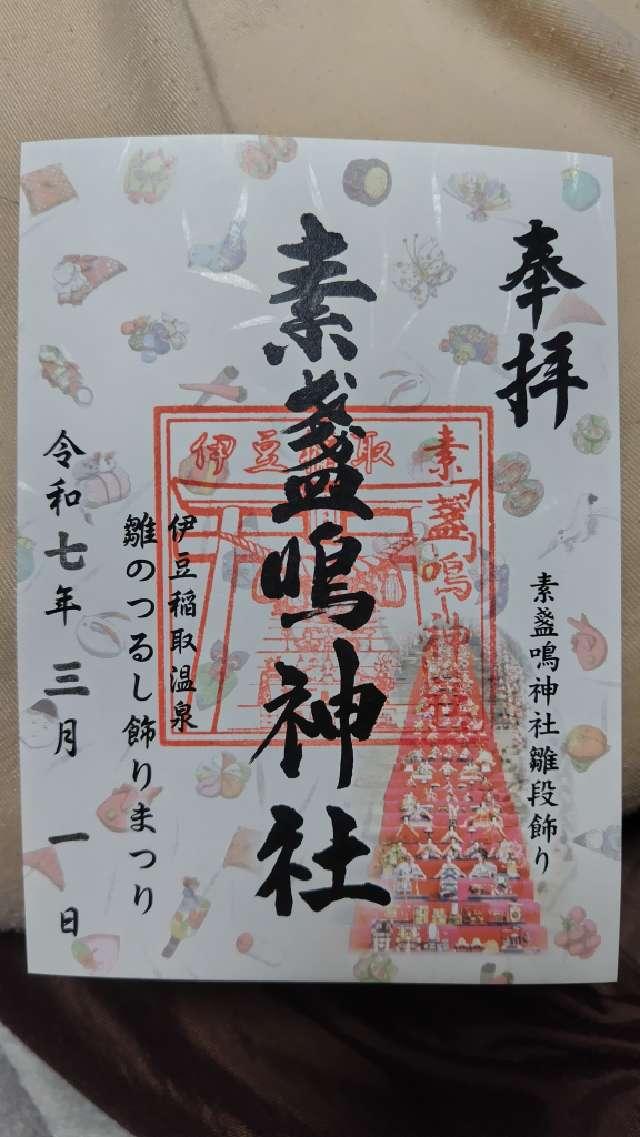 奉拝
素盞鳴神社雛段飾り
素盞鳴神社
伊豆稲取
素盞鳴神社
伊豆稲取温泉
雛のつるし飾りまつり
令和七年 三月 一日